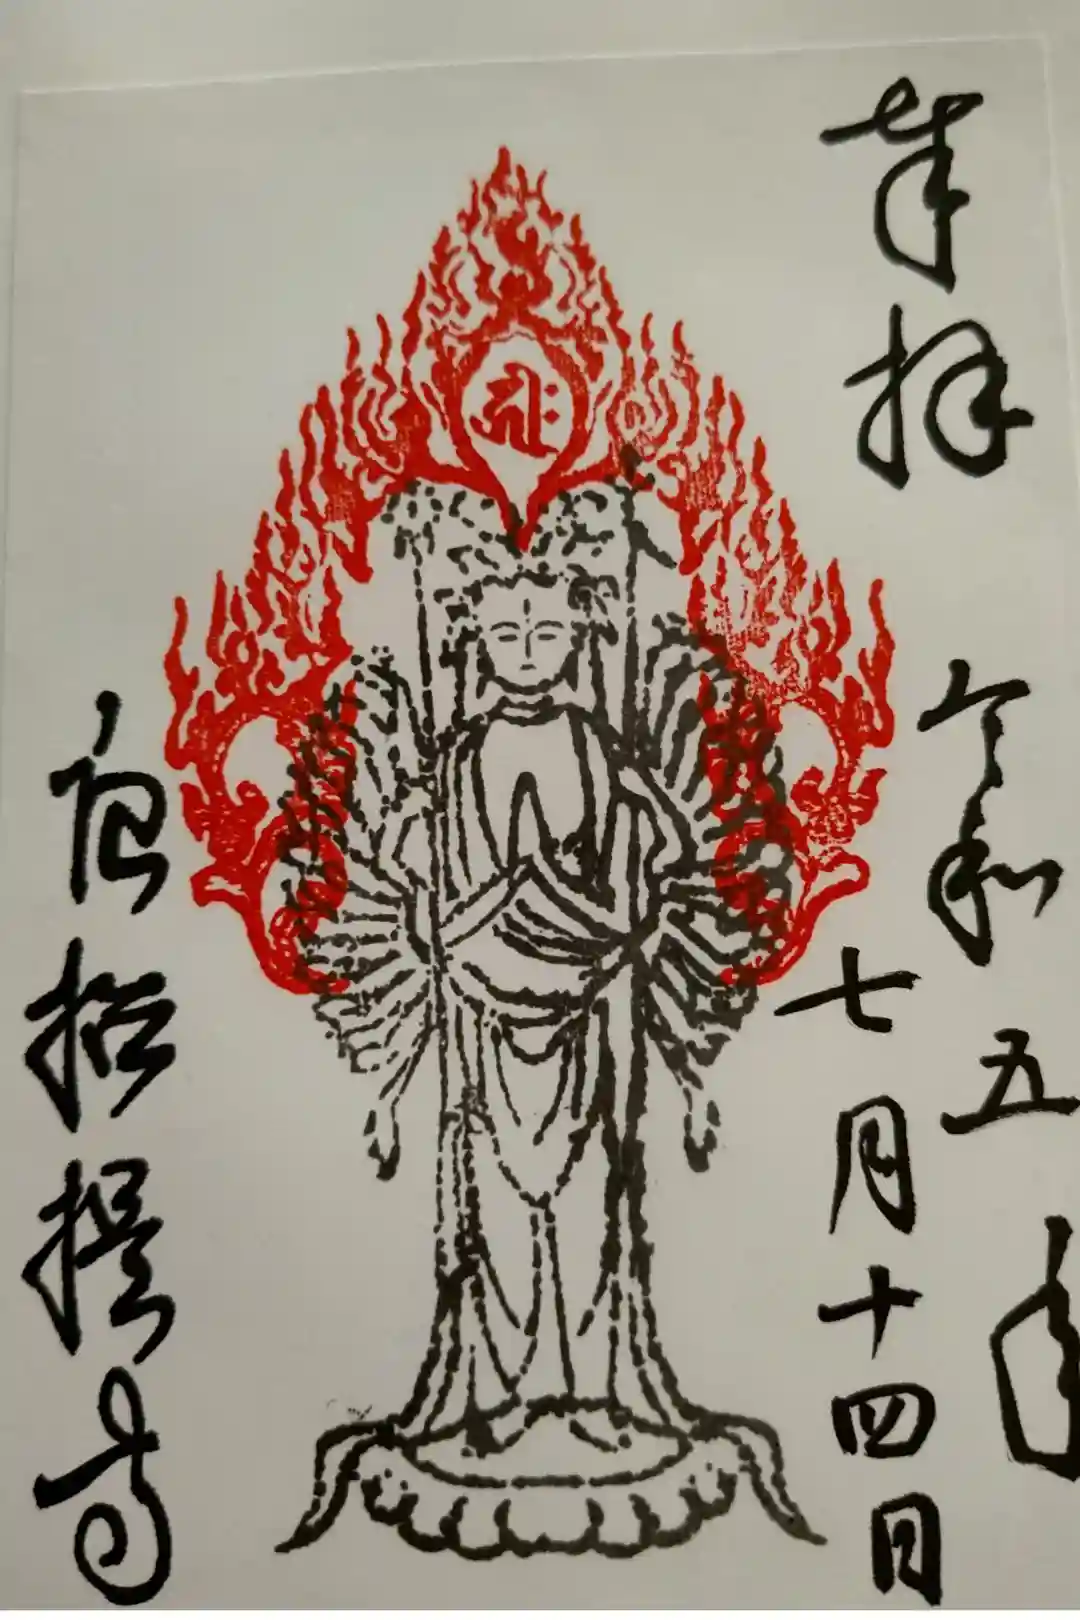 奉拝
令和五年
七月十四日
𑖮𑖿𑖨𑖱𑖾
唐招提寺